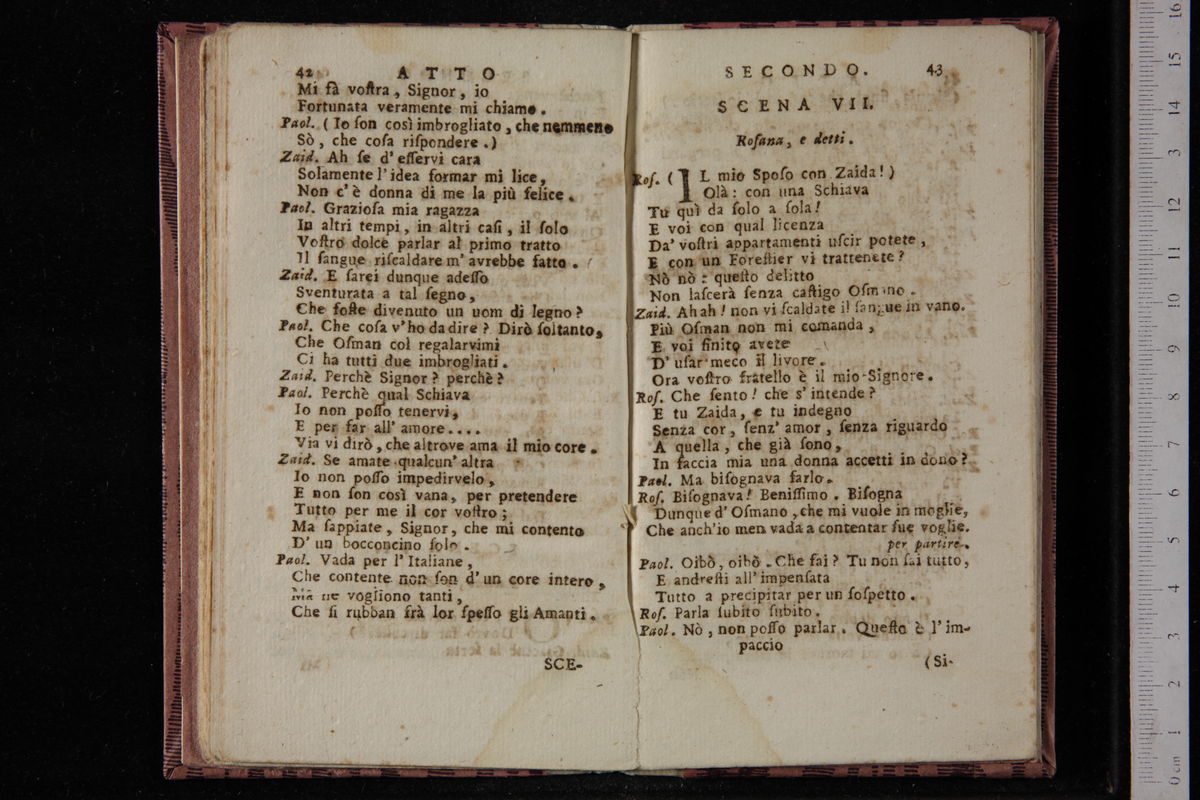 42 ATTO
Mi fà voſtra, Signor, io
Fortunata veramente mi chiamo.
Paol. (Io ſon così imbrogliato, che nemmeno
Sò, che coſa riſpondere.)
Zaid. Ah ſe d'eſſervi cara
Solamente l'idea formar mi lice,
Non c'è donna di me la più felice.
Paol. Grazioſa mia ragazza
In altri tempi, in altri caſi, il ſolo
Voſtro dolce parlar al primo tratto
Il ſangue riſcaldare m'avrebbe fatto.
Zaid. E ſarei dunque adeſſo
Sventurata a tal ſegno,
Che foſte divenuto un uom di legno?
Paol. Che coſa v'ho da dire? Dirò ſoltanto,
Che Oſman col regalarvimi
Ci ha tutti due imbrogliati.
Zaid. Perchè Signor? perchè?
Paol. Perchè qual Schiava
Io non poſſo tenervi,
E per far all'amore....
Via vi dirò, che altrove ama il mio core.
Zaid. Se amate qualcun'altra
Io non poſſo impedirvelo,
E non ſon così vana, per pretendere
Tutto per me il cor voſtro;
Ma ſappiate, Signor, che mi contento
D'un bocconcino ſolo.
Paol. Vada per l'Italiane,
Che contente non ſon d'un core intero,
Ma ne vogliono tanti,
Che ſi rubban frà lor ſpeſſo gli Amanti.
SCE-
SECONDO. 43
SCENA VII.
Roſana, e detti.
Roſ. (IL mio Spoſo con Zaida!)
Olà: con una Schiava
Tu quì da ſolo a ſola!
E voi con qual licenza
Da' voſtri appartamenti uſcir potete,
E con un Foreſtier vi trattenete?
Nò nò: queſto delitto
Non laſcerà ſenza caſtigo Oſmano.
Zaid. Ah ah! non vi ſcaldate il ſangue in vano.
Più Oſman non mi comanda,
E voi finito avete
D'uſar meco il livore.
Ora voſtro fratello è il mio Signore.
Roſ. Che ſento! che s'intende?
E tu Zaida, e tu indegno
Senza cor, ſenz'amor, ſenza riguardo
A quella, che già ſono,
In faccia mia una donna accetti in dono?
Paol. Ma biſognava farlo.
Roſ. Biſognava! Beniſſimo. Biſogna
Dunque d'Oſmano, che mi vuole in moglie,
Che anch'io men vada a contentar ſue voglie.
per partire.
Paol. Oibò, oibò. Che fai? Tu non ſai tutto,
E andreſti all'impenſata
Tutto a precipitar per un ſoſpetto.
Roſ. Parla ſubito ſubito.
Paol. Nò, non poſſo parlar. Queſto è l'im-
paccio
(Si-